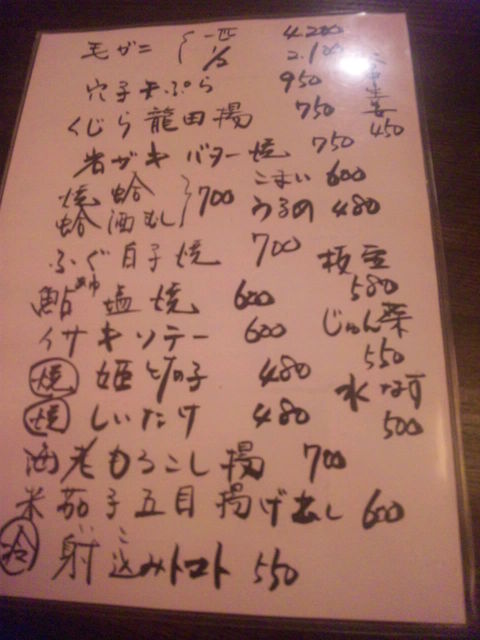 毛ガニ 一匹 4.200
1/2 2.100
穴子天ぷら 950
くじら龍田揚 750
岩ガキ バター焼 750
焼蛤
蛤酒むし 700
ふぐ白子焼 700
鮎塩焼 600
イサキソテー 600
焼 姫竹の子 480
焼 しいたけ 480
もろこし揚 700
米茄子五目揚げ出し 600
冷 射込みトマト 550
450
こまい 600
うるめ 480
580
じゅん菜
550
水なす
500